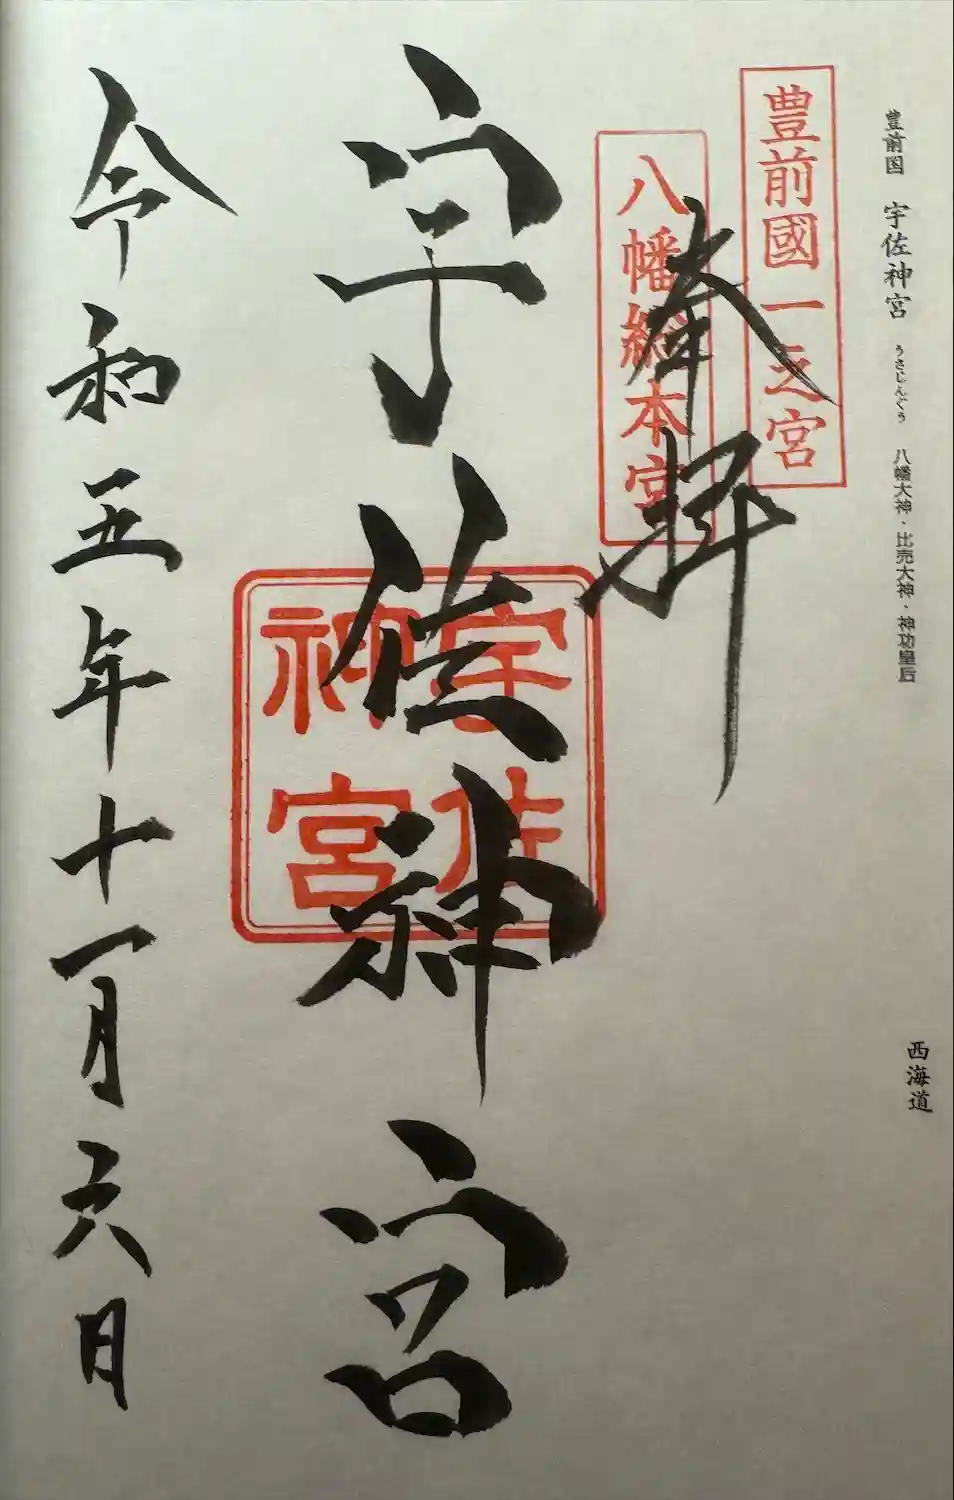 豊前国 宇佐神宮 うさじんぐう 八幡大神・比売大神・神功皇后
西海道
豊前國一之宮
八幡総本宮
奉拝
宇佐神宮
宇佐
神宮
令和五年十一月六日